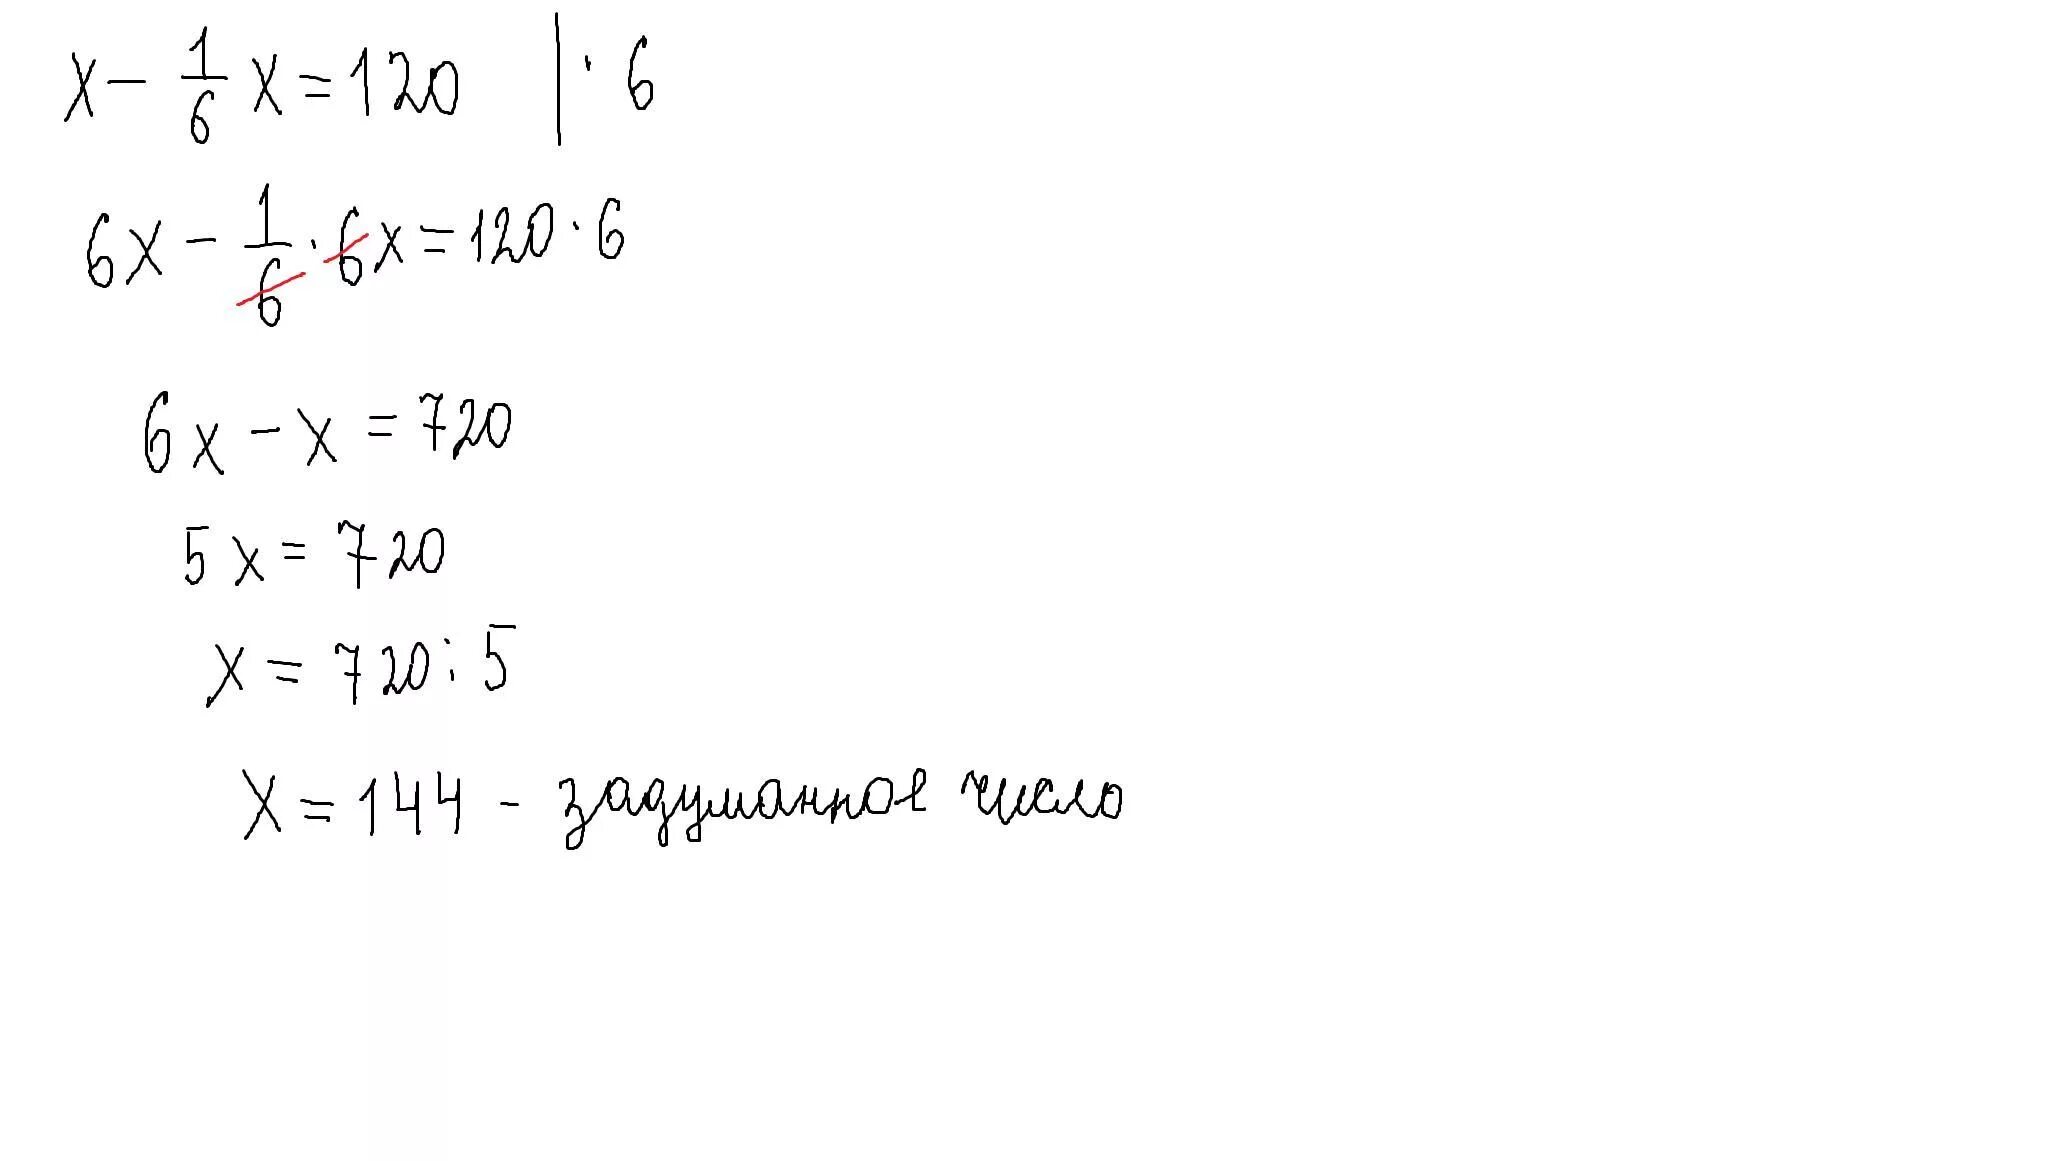 x - 1/6 x = 120 | · 6
6x - 1/6 · 6x = 120 · 6
6x - x = 720
5x = 720
x = 720 : 5
x = 144 - задуманное число